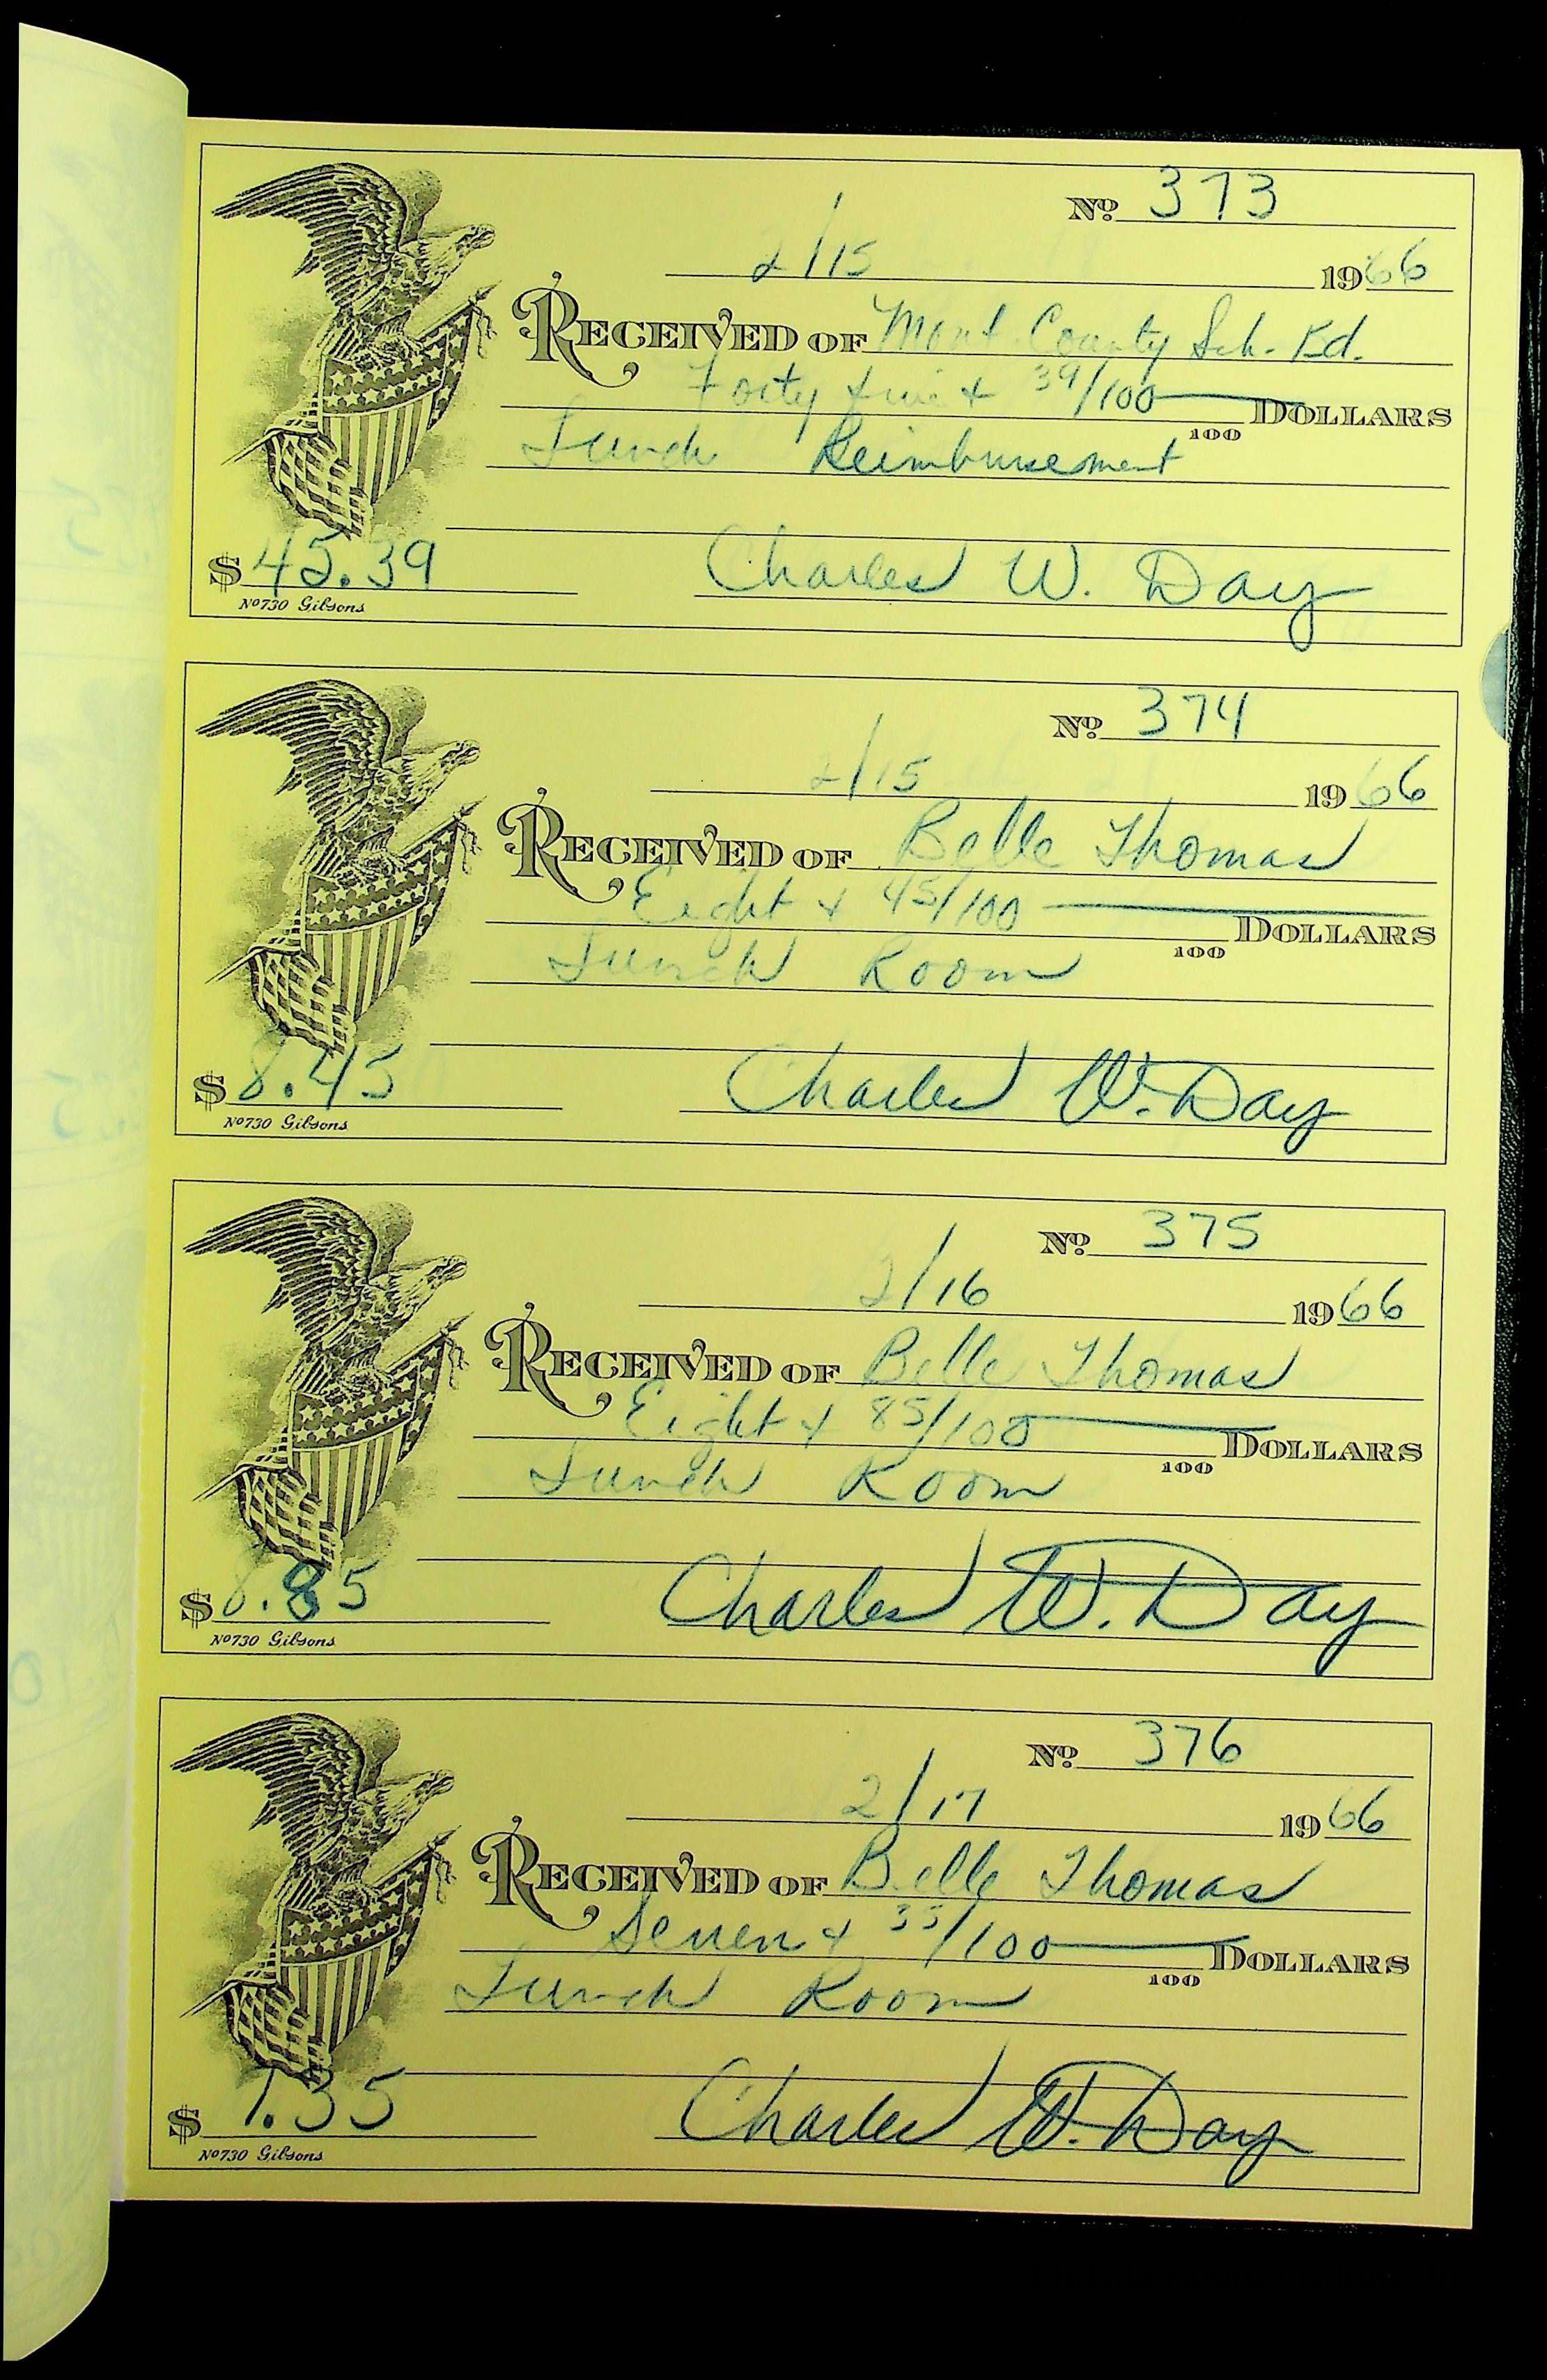 No. 373
2/15 1966
RECEIVED OF Mont. County Sch. Bd.
Forty five & 39/100 DOLLARS
100
Lunch Reimbursement
$ 45.39 Charles W. Day
No 730 Gibsons
No. 374
2/15 1966
RECEIVED OF Belle Thomas
Eight & 45/100 DOLLARS
100
Lunch Room
$ 8.45 Charles W. Day
No 730 Gibsons
No. 375
2/16 1966
RECEIVED OF Belle Thomas
Eight & 85/100 DOLLARS
100
Lunch Room
$ 8.85 Charles W. Day
No 730 Gibsons
No. 376
2/17 1966
RECEIVED OF Belle Thomas
Seven & 35/100 DOLLARS
100
Lunch Room
$ 7.35 Charles W. Day
No 730 Gibsons